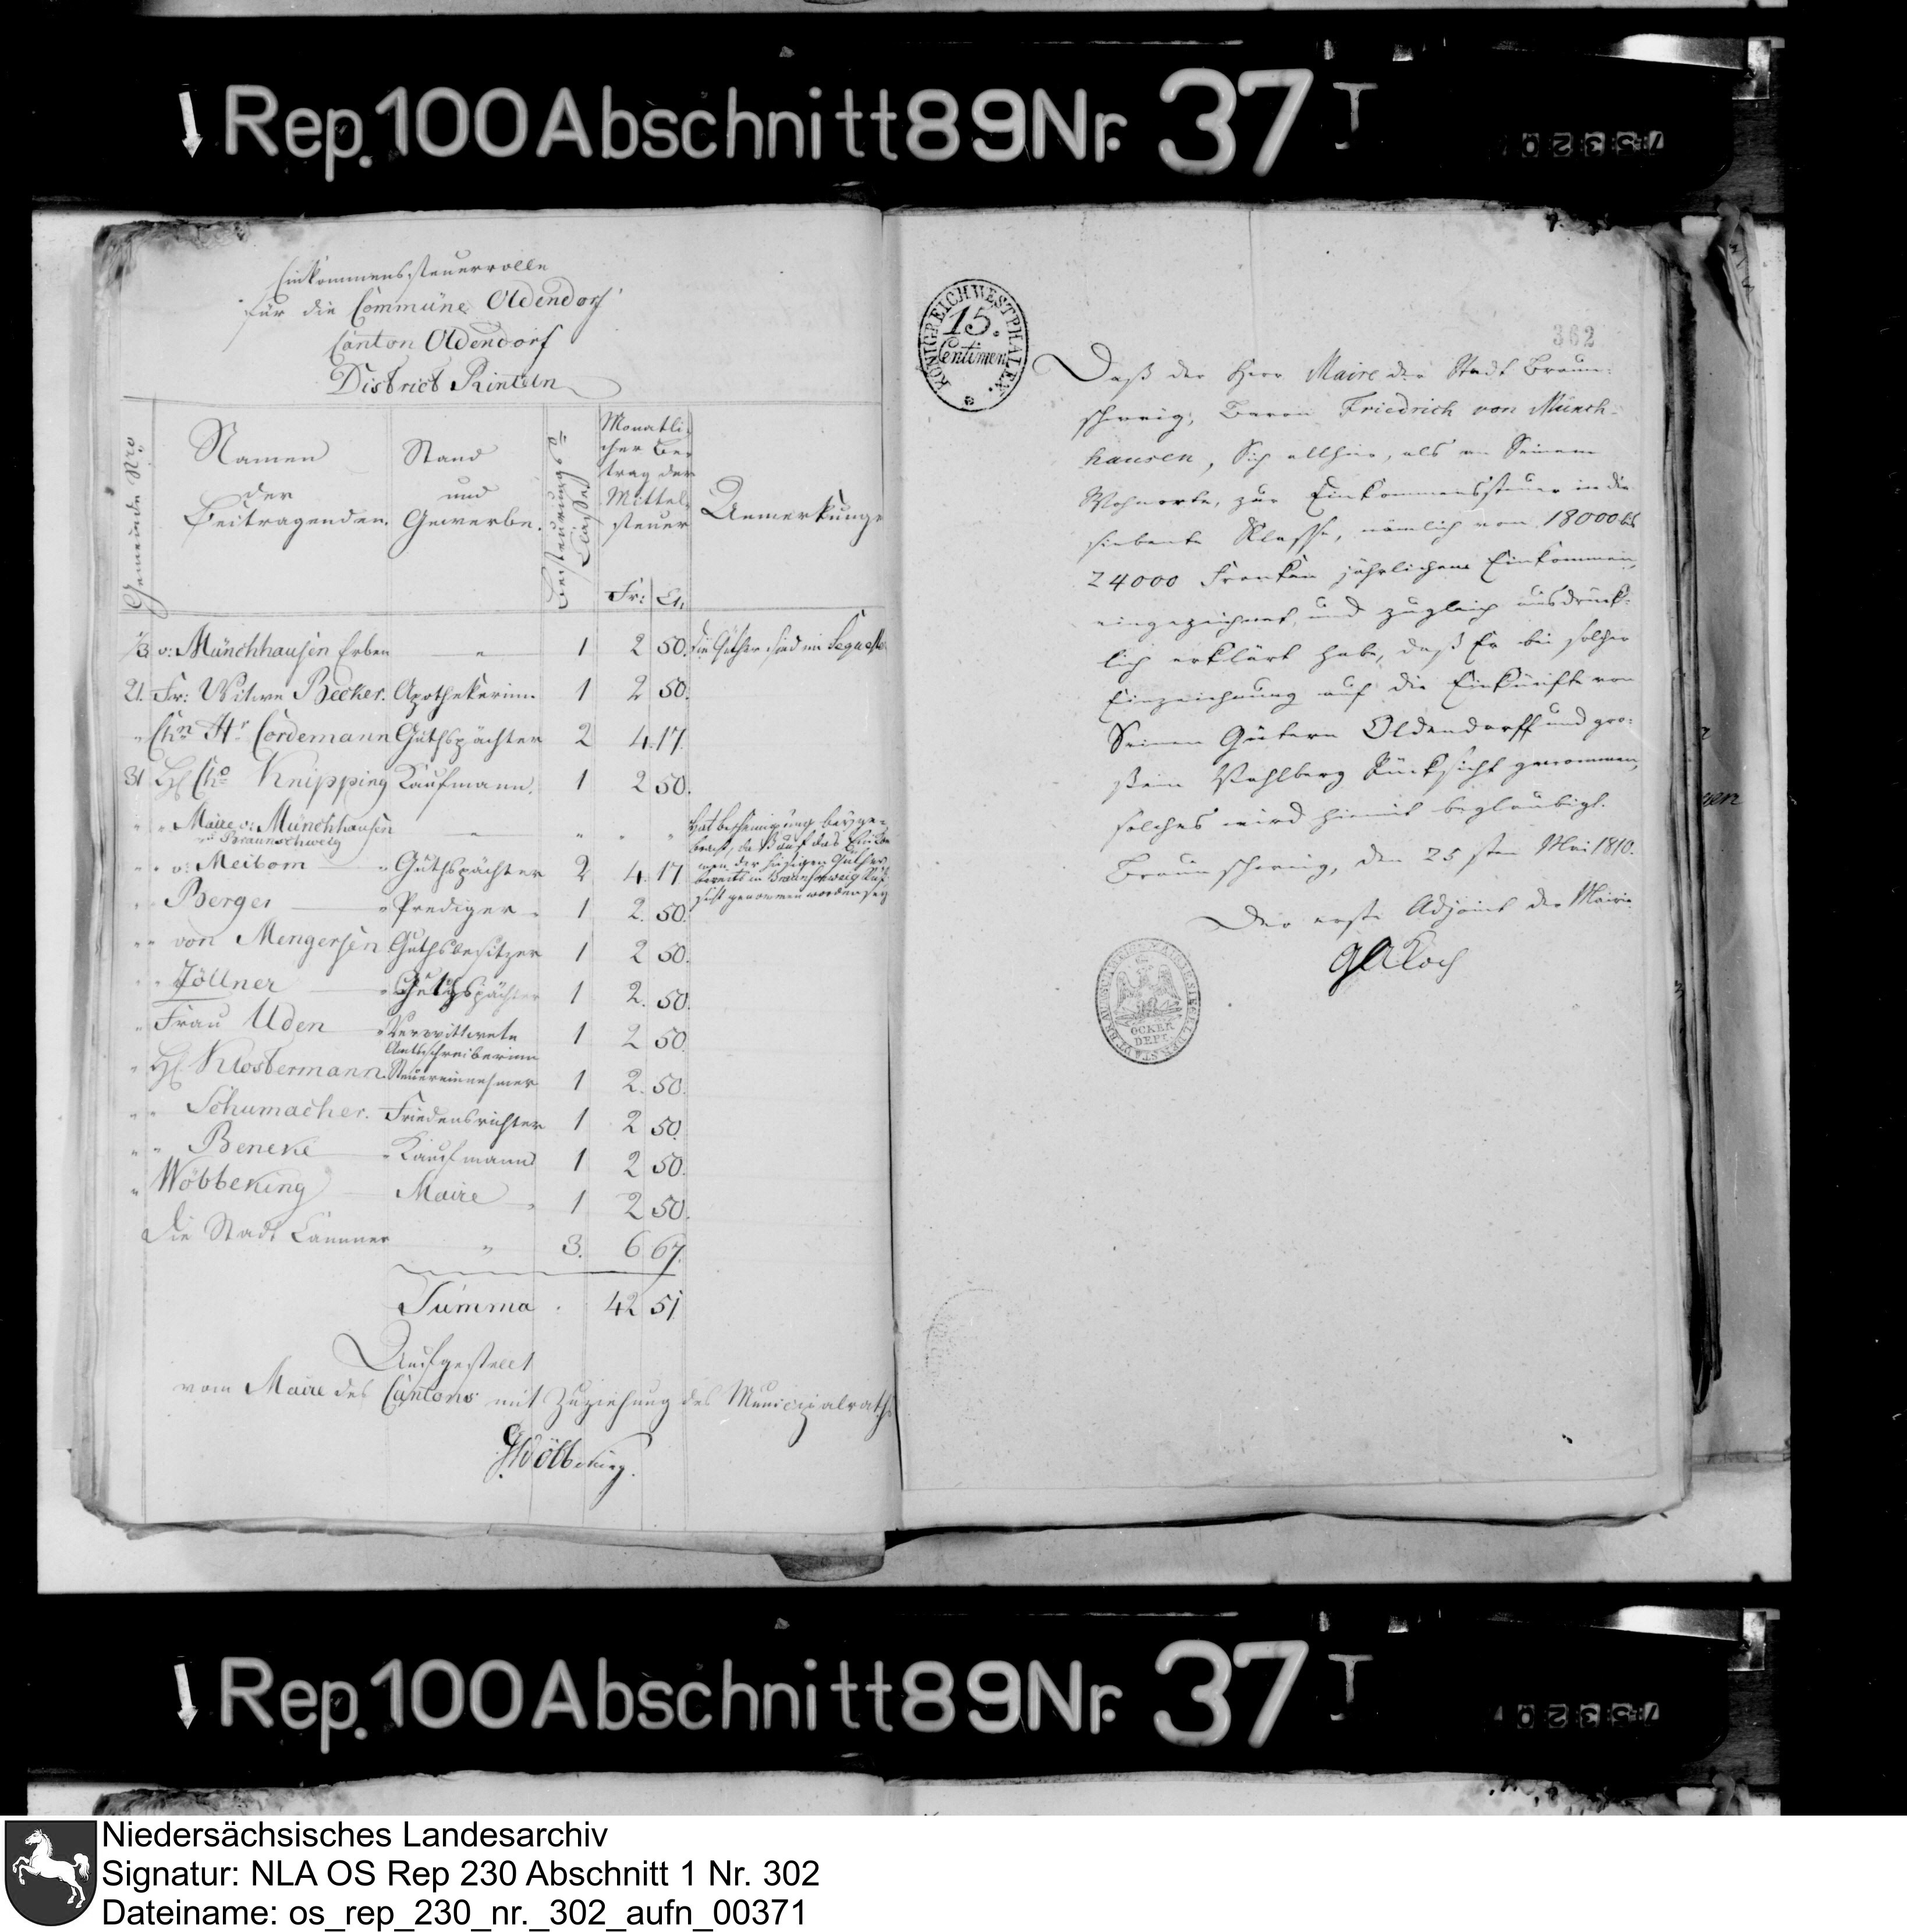 Rep. 100 Abschnitt 89 Nr. 37 I
Einkommenssteuerrolle
für die Commüne Oldendorf
Canton Oldendorf
District Rinteln
Gemeinde Nro
Namen der Beitragenden.
Stand und Gewerbe.
Besteurungs Classe
Monatlicher Beitrag der Mittelsteuer
Fr: Ct.
Anmerkunge
1/3 v: Münchhausen Erben " 1 2 50. die Güther sind im Seques
21. Fr: Witwe Becker. Apothekerinn. 1 2 50.
" Chn Hr Cordemann Guthspächter 2 4. 17.
31 H. Cho Knipping Kaufmann. 1 2 50.
" " Maire v: Münchhausen " " " "
zu Braunschweig
Hat bescheinigung beyge-
bracht, daß auf das Einkom
men der hiesigen Güther
bereits in Braunschweig Rük
sicht genommen worden sey
" " v: Meibom " Guthspächter 2 4. 17
" Berger " Prediger 1 2. 50.
" " von Mengersen Guthsbesitzer 1 2 50.
" " Zöllner " Guthspächter 1 2. 50.
" Frau Uden " Verwittwete 1 2 50.
Amtsschreiberinn
" H. Klostermann. Steuereinnehmer 1 2. 50.
" " Schumacher. Friedensrichter 1 2 50.
" " Beneke " Kaufmann 1 2 50.
" Wöbbeking Maire " 1 2 50.
Die Stadt Cämmer " 3. 6 67.
Summa 42 51
Aufgestellt
vom Maire des Cantons mit Zuziehung des Municipalraths
Wöbbeking.
KÖNIGREICH WESTPHALEN.
15.
Centimen
362
Daß der Herr Maire der Stadt Braun-
schweig, Baron Friedrich von Münch-
hausen, Sich allhier, als an Seinem
Wohnorte, zur Einkommenssteuer in die
siebente Klasse, nämlich von 18000 bis
24000 Franken jährlichem Einkommen,
eingezeichnet, und zugleich ausdrück-
lich erklärt habe, daß Er bei solcher
Einzeichnung auf die Einkünfte von
Seinen Gütern Oldendorff und gro-
ßem Vahlberg Rücksicht genommen,
solches wird hiemit beglaubigt.
Braunschweig, den 25sten Mai 1810.
Der erste Adjoint der Mairie
Koch
OCKER
DEPT.
Rep. 100 Abschnitt 89 Nr. 37 I
Niedersächsisches Landesarchiv
Signatur: NLA OS Rep 230 Abschnitt 1 Nr. 302
Dateiname: os_rep_230_nr._302_aufn_00371